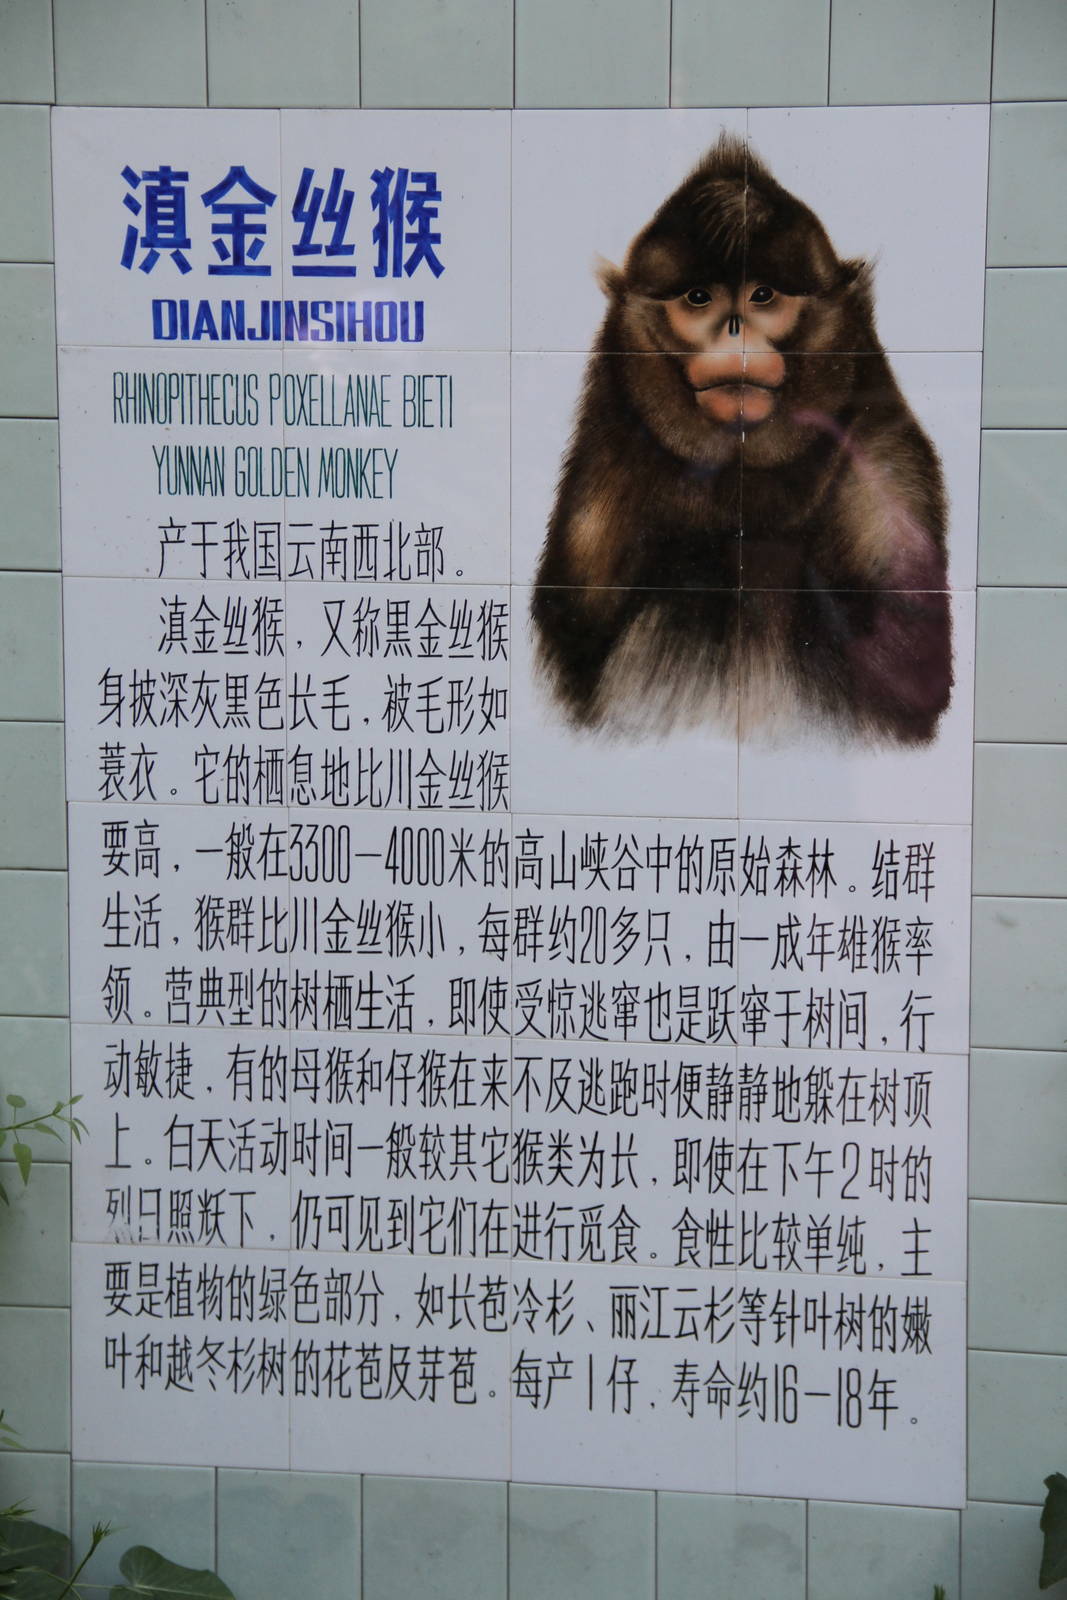 滇金丝猴
DIANJINSIHOU
RHINOPITHECUS POXELLANAE BIETI
YUNNAN GOLDEN MONKEY
产于我国云南西北部。
滇金丝猴，又称黑金丝猴
身披深灰黑色长毛，被毛形如
蓑衣。它的栖息地比川金丝猴
要高，一般在3300—4000米的高山峡谷中的原始森林。结群
生活，猴群比川金丝猴小，每群约20多只，由一成年雄猴率
领。营典型的树栖生活，即使受惊逃窜也是跃窜于树间，行
动敏捷，有的母猴和仔猴在来不及逃跑时便静静地躲在树顶
上。白天活动时间一般较其它猴类为长，即使在下午2时的
烈日照耀下，仍可见到它们在进行觅食。食性比较单纯，主
要是植物的绿色部分，如长苞冷杉、丽江云杉等针叶树的嫩
叶和越冬杉树的花苞及芽苞。每产1仔，寿命约16—18年。